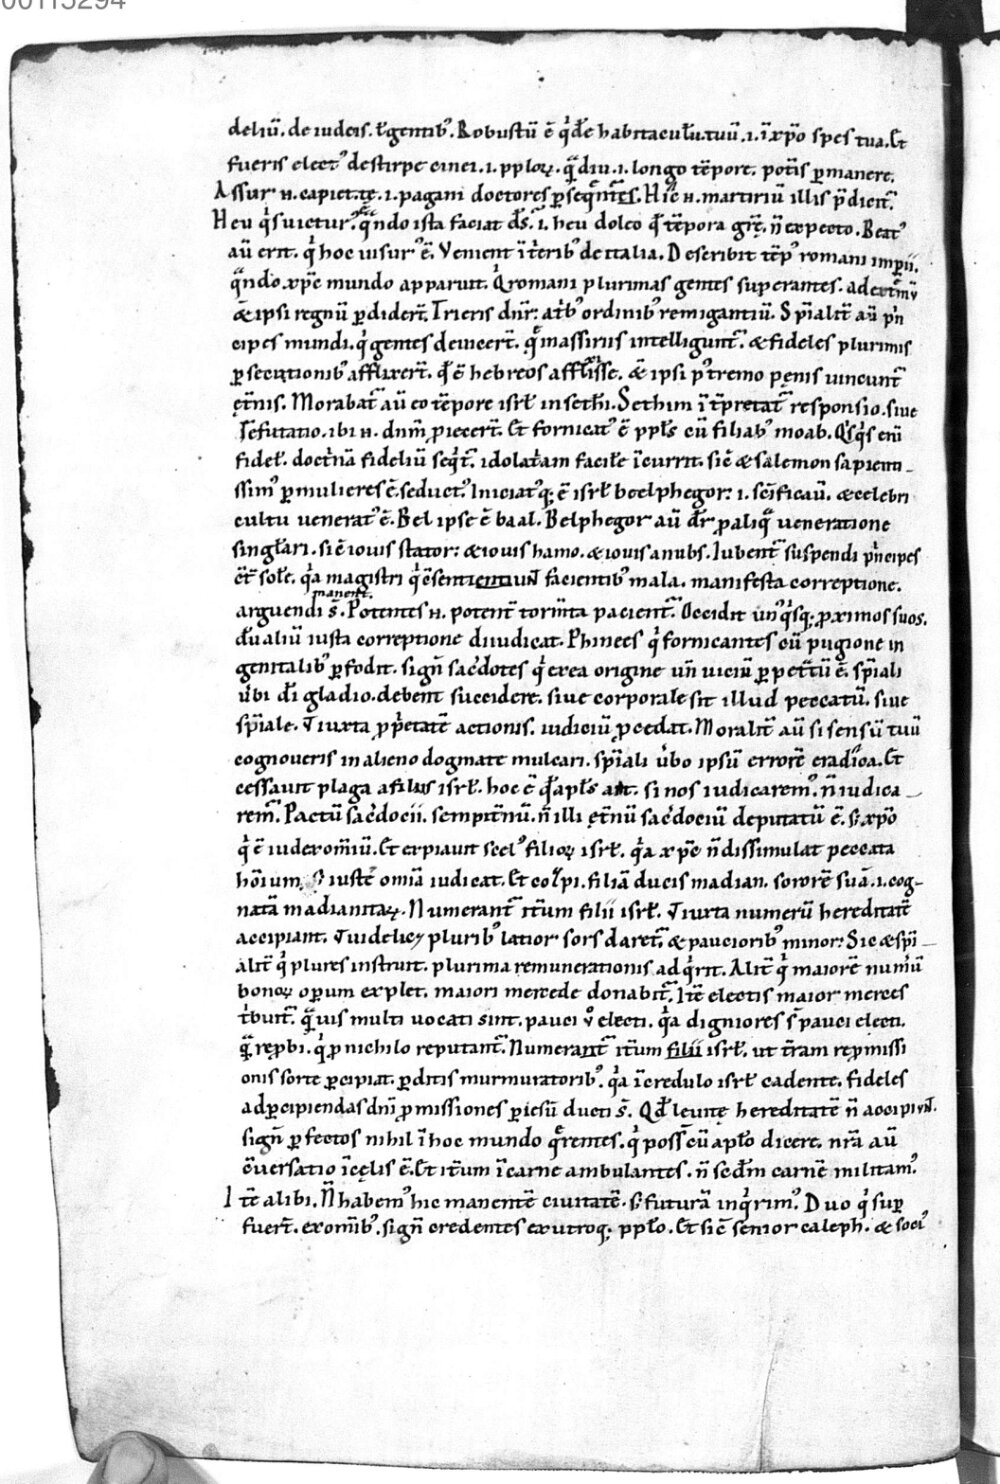 00115294
deliū. de iudeis. ł gentib᾽. Robustū ē q̇dē habitaculū. tuū .i. ī xp̄o spes tua. Et
fueris elect᾽ de stirpe cinei .i. pplоꝝ. q̄diu .i. longo tēpore. potis ꝑmanere.
Assur n̄. capiet te .i. pagani doctores ꝑseq̄ntes. Hic n̄. martiriū illis p̄dicit᷒.
Heu q̇s uictur᾽. q̄ndo ista faciat d̄s. .i. heu doleo q̄ tēpora grę. n̄ expecto. Beat᾽
aū erit. q̇ hoc uisur᾽ ē. Venient ī trierib᾽ de italia. Describit tēp᾽ romani imperii.
q̄ndo xp̄c mundo apparuit. Q̇ romani plurimas gentes superantes. ad extmū
& ipsi regnū ꝑdider̄. Trieris dn̄r: a trib᾽ ordinib᾽ remigantiū. Sp̄ialit᷒ aū p̄n
cipes mundi. q̇ gentes deuicer̄. q̄ massiriis intelligunt᷒. & fideles plurimis
ꝑsecutionib᾽ afflixer̄. q̄ ē hebreos afflixisse. & ipsi p᾽tremo penis uincunt᷒
ęt̄nis. Morabat᷒ aū eo tēpore isrł in sethī. Sethim īt̄pretat᷒ responsio. siue
refutatio. ibi n̄. dnm̄ ꝓiecer̄. Et fornicat᾽ ē ppłs cū filiab᾽ moab. Q̇sq̇s enī
fideł. doctrinā fideliū seq̇t᷒. idolatriam facile īcurrit. sic̄ & salemon sapienti-
ssim᾽ ꝑ mulieres ē. seduct᾽. Iniciat᾽q; ē isrł beelphegor: .i. scīficaū. & celebri
cultu uenerat᾽ ē. Bel ipse ē baal. Belphegor aū dr̄ ꝓ aliq̄ ueneratione
singłari. sic̄ iouis stator: & iouis hamo. & iouis anubs. Iubent᷒ suspendi p̄ncipes
cт̄ sołe. q̇a magistri q̇ ̄sentientiunt facientib᾽ mala. manifesta correptione.
manent.
arguendi s̄. Potentes n̄. potent᷒ torm̄ta pacient᷒. Occidit un᾽q̇sq; ꝓximos suos.
dū aliū iusta correptione diiudicat. Phinees q̇ fornicantes cū pugione in
genitalib᾽ ꝑfodit. sign̄ sac̄dotes q̇ circa origine un̄ uiciū ꝑpet᷒tū ē. sp̄iali
ūbi dī gladio. debent succidere. siue corporale sit illud peccatū. siue
sp̄iale. & iuxta ꝓp̄etatē actionis. iudiciū ꝓcedat. Moralit᷒ aū si sensū tuū
cognoueris in alieno dogmate mulcari. sp̄iali ūbo ipsū errorē eradica. Et
cessauit plaga a filiis isrł. hoc ē q̄ apłs ait. si nos iudicarem᾽. n̄ iudica-
rem᷒. Pactū sac̄docii. sempit̄nū. n̄ illi ęt̄nū sac̄dociū deputatū ē. s; xp̄o
q̇ ē iudex om̄iū. Et expiauit scel᾽ filioꝝ isrł. q̇a xp̄c n̄ dissimulat peccata
hōium, s; iuste omīa iudicat. Et cozbi. filiā ducis madian. sororē suā .i. cog-
natā madianitaꝝ. Numerant᷒ it̄um filii isrł. & iuxta numerū hereditatē
accipiant. & uidelicꝫ plurib᾽ latior sors daret᷒. & paucioribꝰ minor: Sic & sp̄i-
alit᷒ q̇ plures instruit. plurima remunerationis adq̇rit. Alit᷒ q̇ maiorē num̄ū
bonoꝝ operum explet. maiori mercede donabit᷒. Itē electis maior merces
t̄buit᷒. q̄uis multi uocati sint. pauci v̄ electi. q̇a digniores s̄ pauci electi.
q̄ reprobi. q̇ ꝓ nichilo reputant᷒. Numerant᷒ it̄um filii isrł. ut t̄ram repromissi
onis sorte ꝑcipiat. ꝑditis murmuratorib᾽. q̇a īcredulo isrł cadente. fideles
ad ꝑcipiendas dnī ꝓmissiones ꝑ iesū ducti s̄. Qd̄ leuite hereditatē n̄ accipiunt.
sign̄ ꝑfectos nihil ī hoc mundo q̄rentes. q̇ possꝯ cū apło dicere. nr̄a aū
ꝯuersatio ī cęlis ē. Et it̄um ī carne ambulantes. n̄ sedm̄ carnē militam᾽.
Itē alibi. N̄ habem᾽ hic manentē ciuitatē. s; futurā inq̇rim᾽. Duo q̇ suꝑ
fuer̄. ex omīb᾽. sign̄ credentes ex utroq; ppło. Et sic̄ senior caleph. & soci᾽